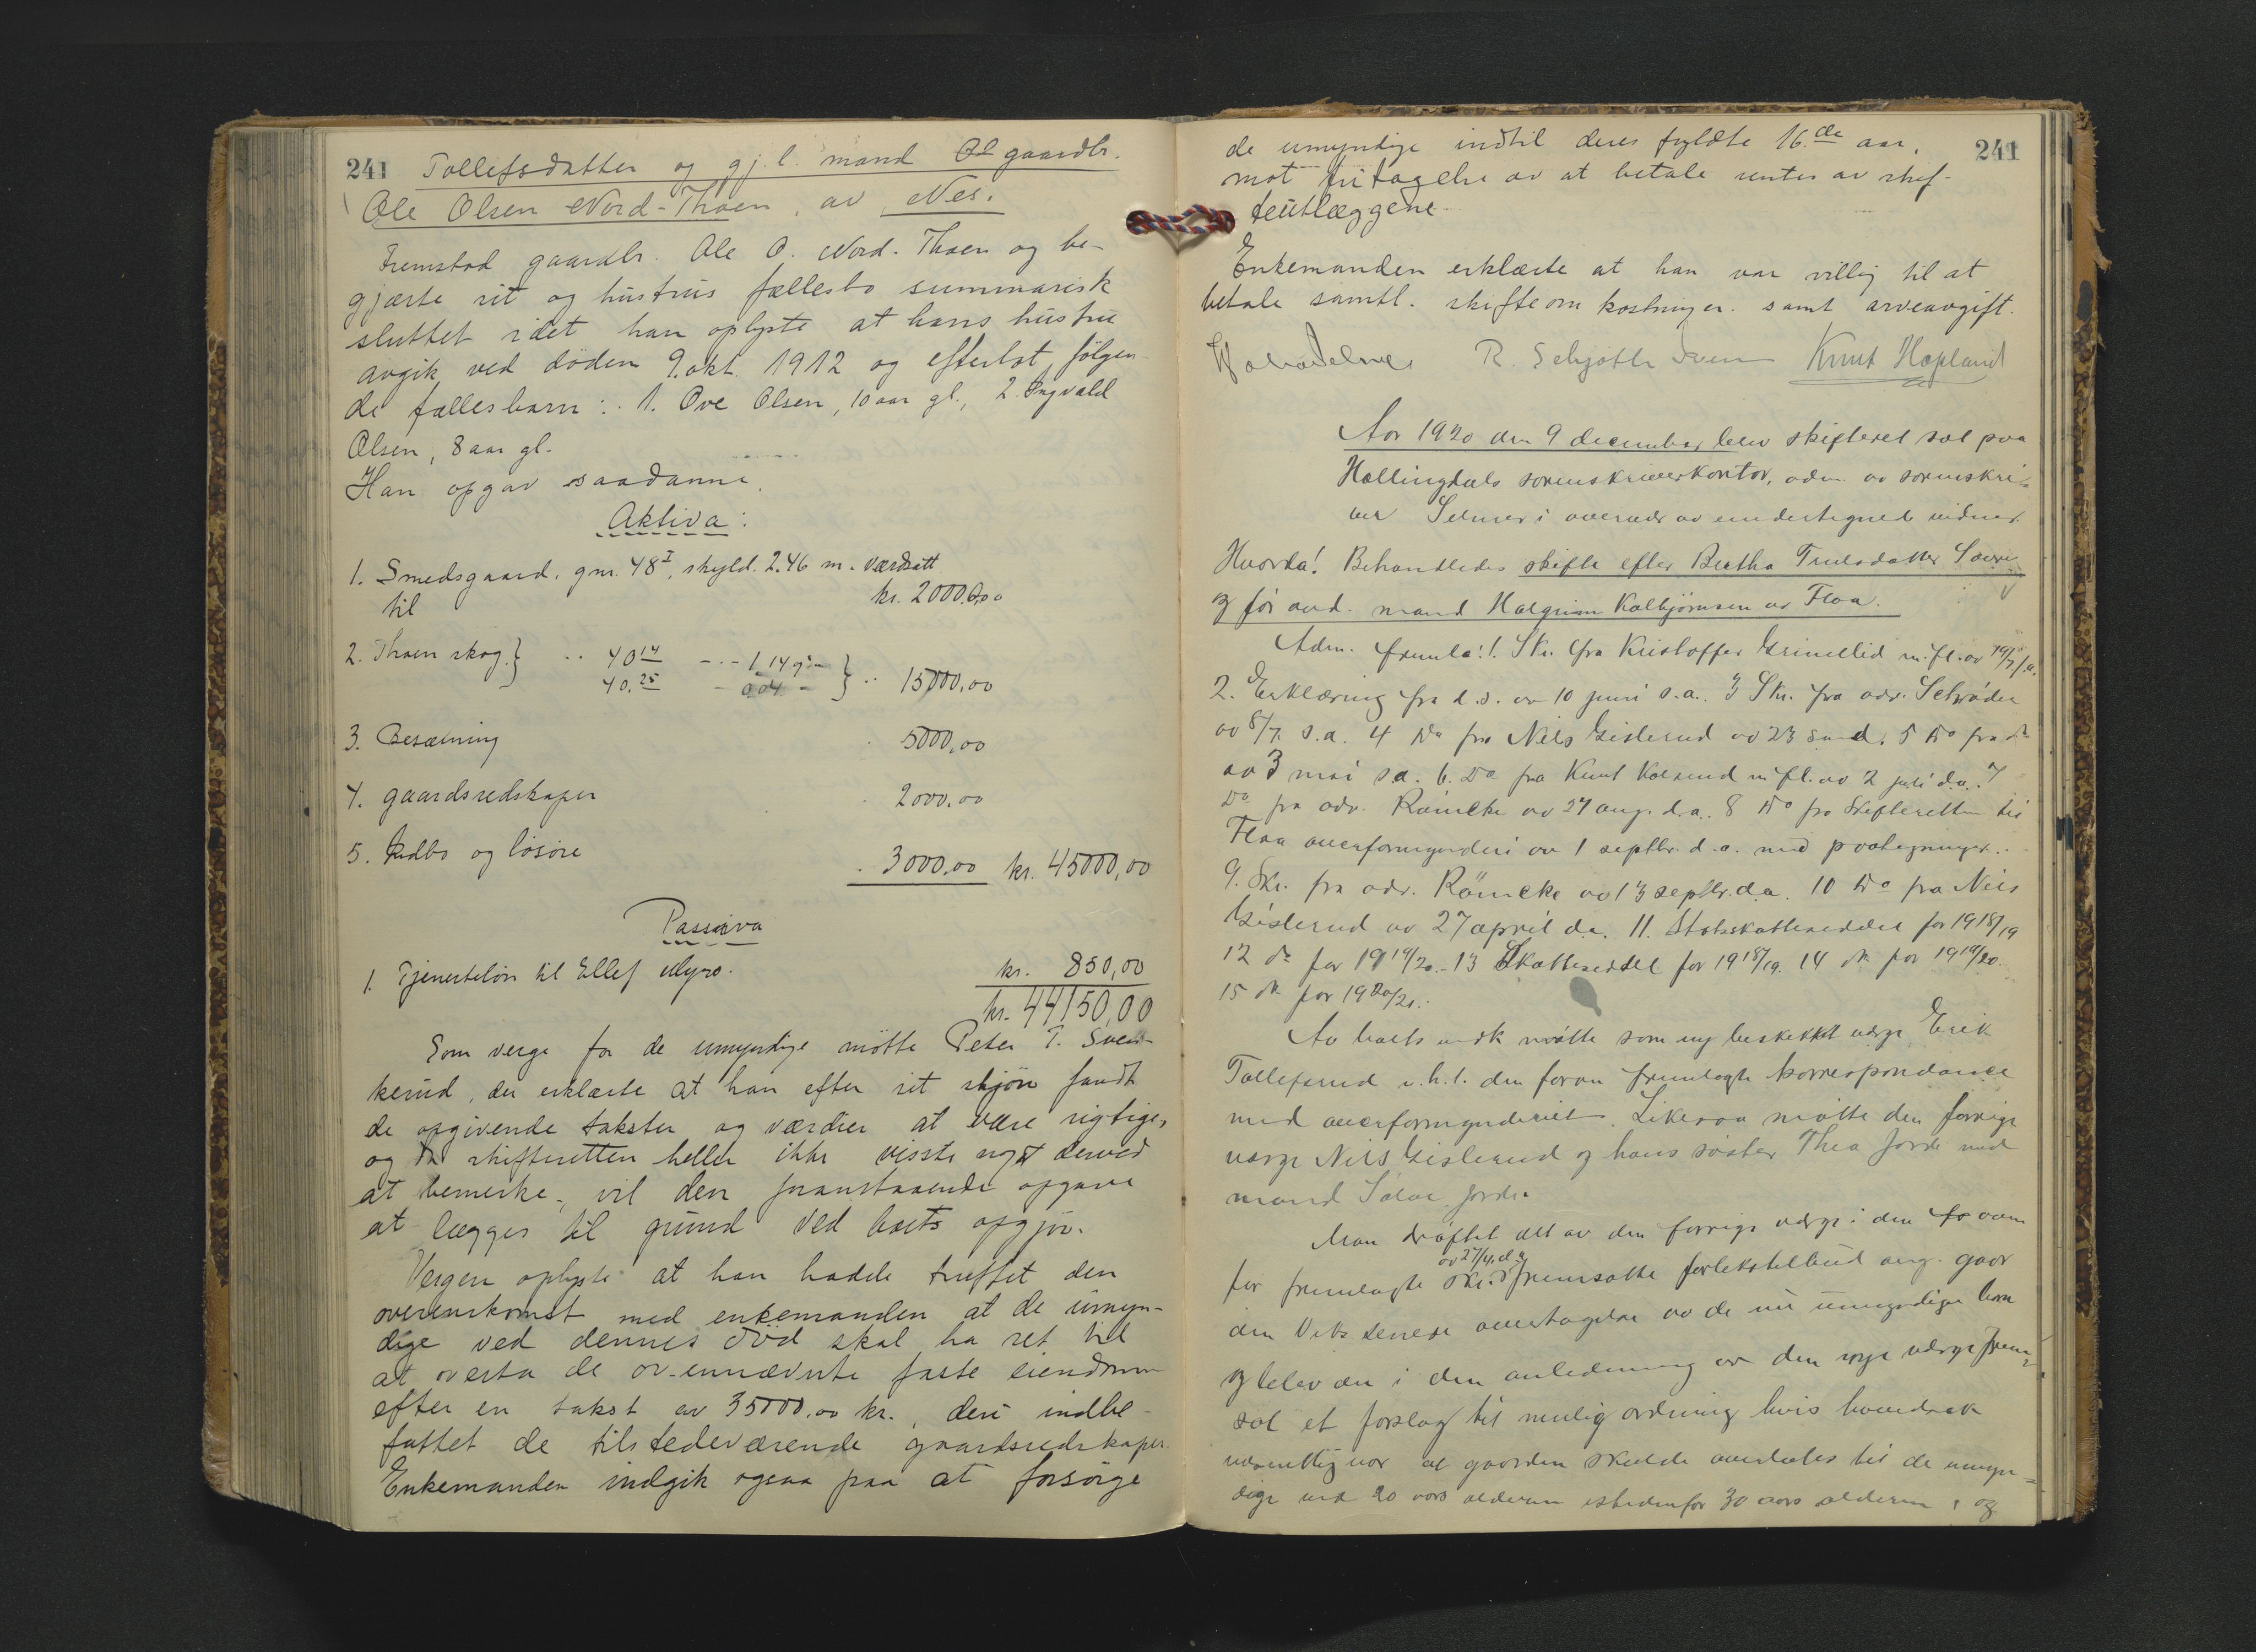 241 Tollefsdatter og gj. l. mand gaardbr.
Ole Olsen Nord-Thoen, av Nes.
Fremstod gaardbr. Ole O. Nord-Thoen og be-
gjærte sit og hustrus fællesbo summarisk
sluttet idet han oplyste at hans hustru
avgik ved døden 9. okt. 1912 og efterlot følgen-
de fællesbarn: 1. Ove Olsen, 10 aar gl., 2. Ingvald
Olsen, 8 aar gl.
Han opgav saadanne
Aktiva:
1. Smedsgaard, gnr. 48 I, skyld. 2.46 m. værdsatt
til kr. 20000,00
2. Thoen skog } " 40 14 - " - 1,14 } " 15000,00
40. 25 - 0,04 -
3. Besætning 5000,00
4. gaardsredskaper 2000,00
5. Indbo og løsøre 3000,00 kr. 45000,00
Passiva
1. Tjenerløn til Ellef Myro. kr. 850,00
kr. 44150,00
Som verge for de umyndige møtte Peter T. Sven-
kerud, der erklærte at han efter sit skjøn fandt
de opgivende takster og værdier at være rigtige,
og da skifteretten heller ikke visste noget derved
at bemerke, vil den foranstaaende opgave
at lægges til grund ved boets opgjør.
Vergen oplyste at han hadde truffet den
overenskomst med enkemanden at de umyn-
dige ved dennes død skal ha ret til
at overta de ovennævnte faste eiendomme
efter en takst av 35000,00 kr., deri indbe-
fattet de tilstedeværende gaardsredskaper.
Enkemanden indgik ogsaa paa at forsørge
241
de umyndige indtil deres fyldte 16.de aar,
mot fritagelse av at betale renter av skif-
teutlæggene.
Enkemanden erklærte at han var villig til at
betale samtl. skifteomkostninger samt arveavgift.
R. Schjøtt Iversen Knut Hapland
Aar 1920 den 9 december blev skifteret sat paa
Hallingdals sorenskriverkontor, adm. av sorenskri-
ver Selmer i overvær av undertegnede vidner.
Hvorda! Behandledes skifte efter Bertha Trulsdatter Sævre
og før avd. mand Halgrim Kolbjørnsen av Flaa.
Adm. fremla: 1. Skr. fra Kristoffer Grimelid m. fl. av
2. Erklæring fra d.s. av 10 juni s.a. 3 Skr. fra adv. Schrøder
av 8/7. s.a. 4 Do fra Nils Gislerud av 23 s.md. 5 Do fra do
av 3 mai s.a. 6. Do fra Knut Kolsrud m fl. av 2 juli d.a. 7
Do fra adv. Römcke av 27 aug. d.a. 8 Do fra Skifteretten til
Flaa overformynderi av 1 septbr. d.a. med paategninger.
9. Skr. fra adv. Römcke av 13 septbr. d.a. 10 Do fra Nils
Gislerud av 27 april d.a. 11. Statsskatteseddel for 1918/19
12 do for 1919/20. - 13 Skatteseddel for 1918/19. 14 do for 1919/20.
15 do for 1920/21.
Av boets møtte som ny beskikket verge Erik
Tollefsrud i.h.t. den foran fremlagte korrespondance
med overformynderiet. Likesaa møtte den forrige
verge Nils Gislerud og hans søster Thea Jorde med
mand Jorde.
Man drøftet det av den forrige verge i den foran
av 27/4. d.a.
før fremlagte skr. fremsatte forliksbud ang. gaar
den senere overtagelse av de nu umyndige barn
og blev der i den anledning av den nye verge frem-
sat et forslag til mulig ordning hvis
væsentlig var at gaarden skulde overlates til de umyn-
dige ved 20 aars alderen istedenfor 30 aars alderen, og